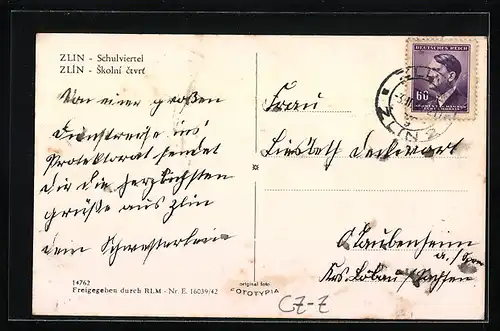 ZLIN - Schulviertel
ZLÍN - Školní čtvrť
Von einer großen
Dienstreise ins
Protektorat sendet
Dir die herzlichsten
Grüße aus Zlin
Dein Schwesterlein
14762
Freigegeben durch RLM - Nr. E. 16039/42
original foto
FOTOTYPIA
DEUTSCHES REICH
60
ZLIN 2
Frau
Liesbeth
Taubenheim
a./Spree
Krs. Löbau/Sachsen
CZ-Z